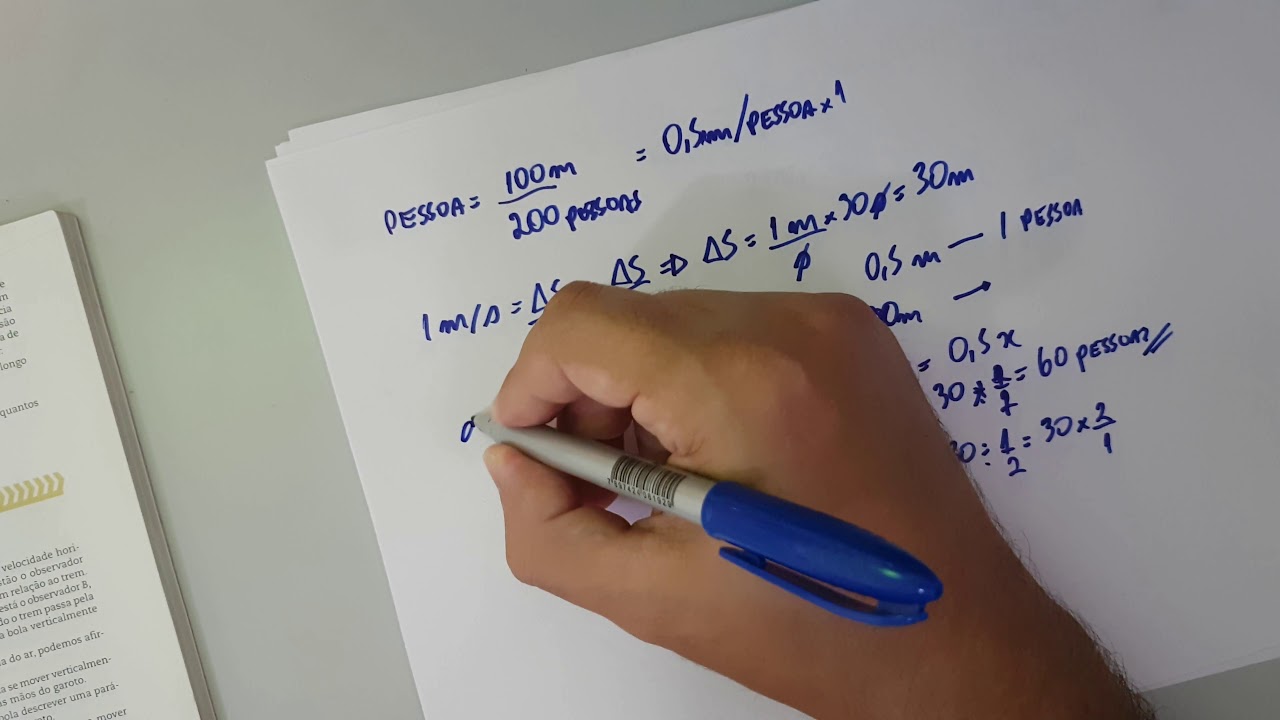 PESSOA = 100m / 200 PESSOAS = 0,5m/PESSOA x 1
1m/s = ΔS ΔS ⇒ ΔS = 1m / s x 30s = 30m
0,5m — 1 PESSOA
0m →
= 0,5x
30 * 2 = 60 PESSOAS //
30 ÷ 1/2 = 30 x 2/1
quantos
longo
a de
são
cia
m
e
velocidade hori-
stão o observador
m relação ao trem.
está o observador B,
do o trem passa pela
a bola verticalmente
a do ar, podemos afir-
a se mover verticalmen-
as mãos do garoto.
bola descrever uma pará-
mover